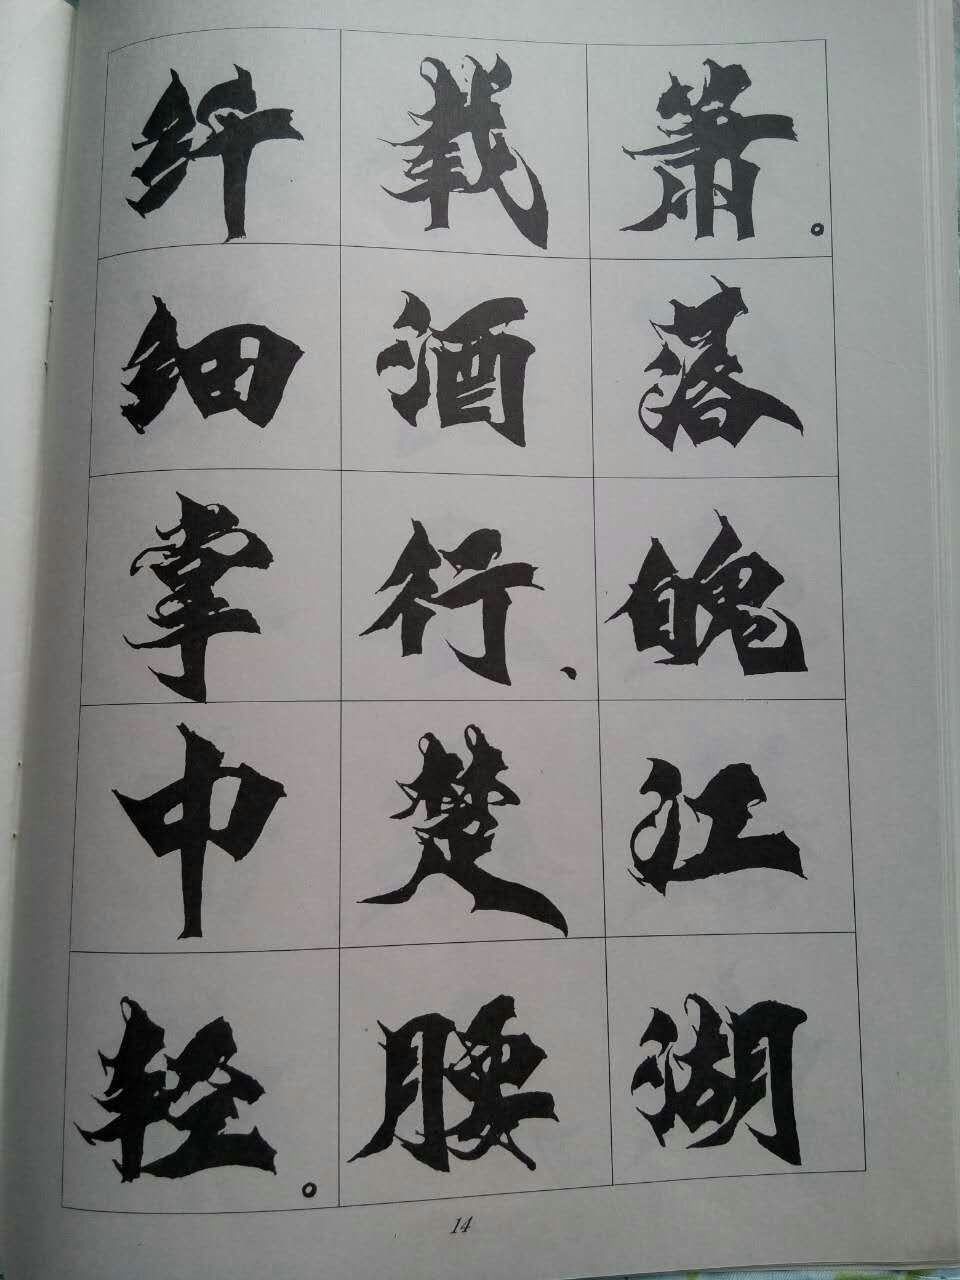 箫。落魄江湖
载酒行、楚腰
纤细掌中轻。
14